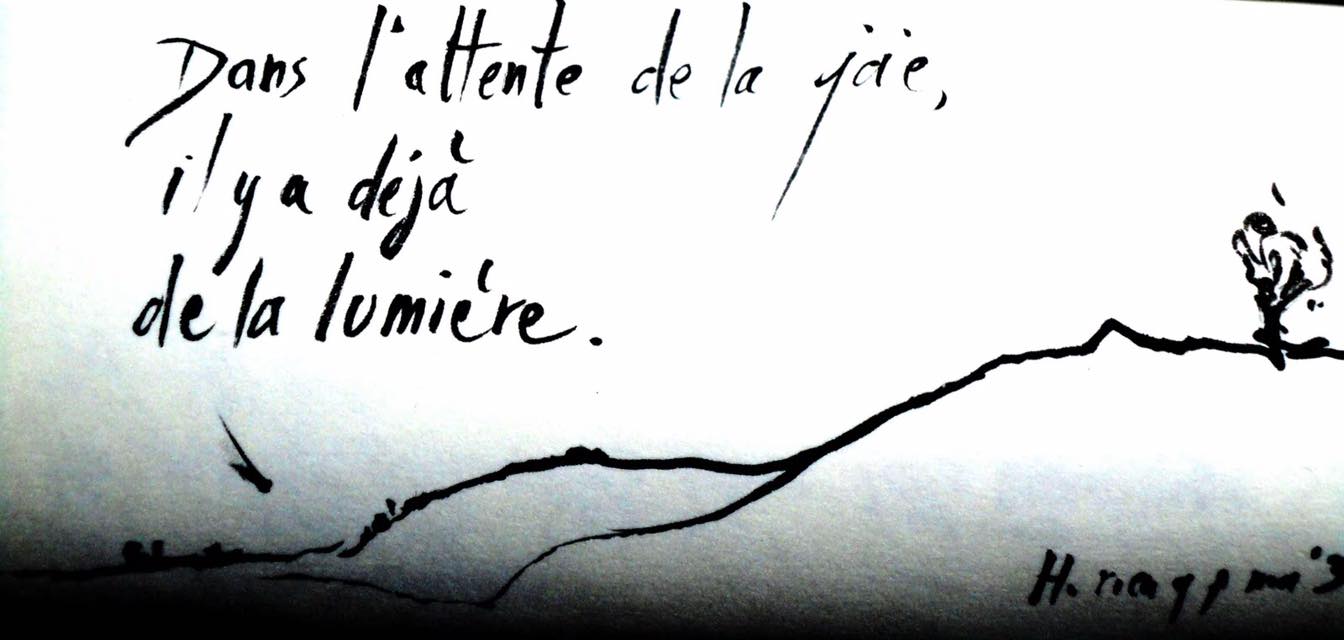 Dans l'attente de la joie,
il y a déjà
de la lumière.